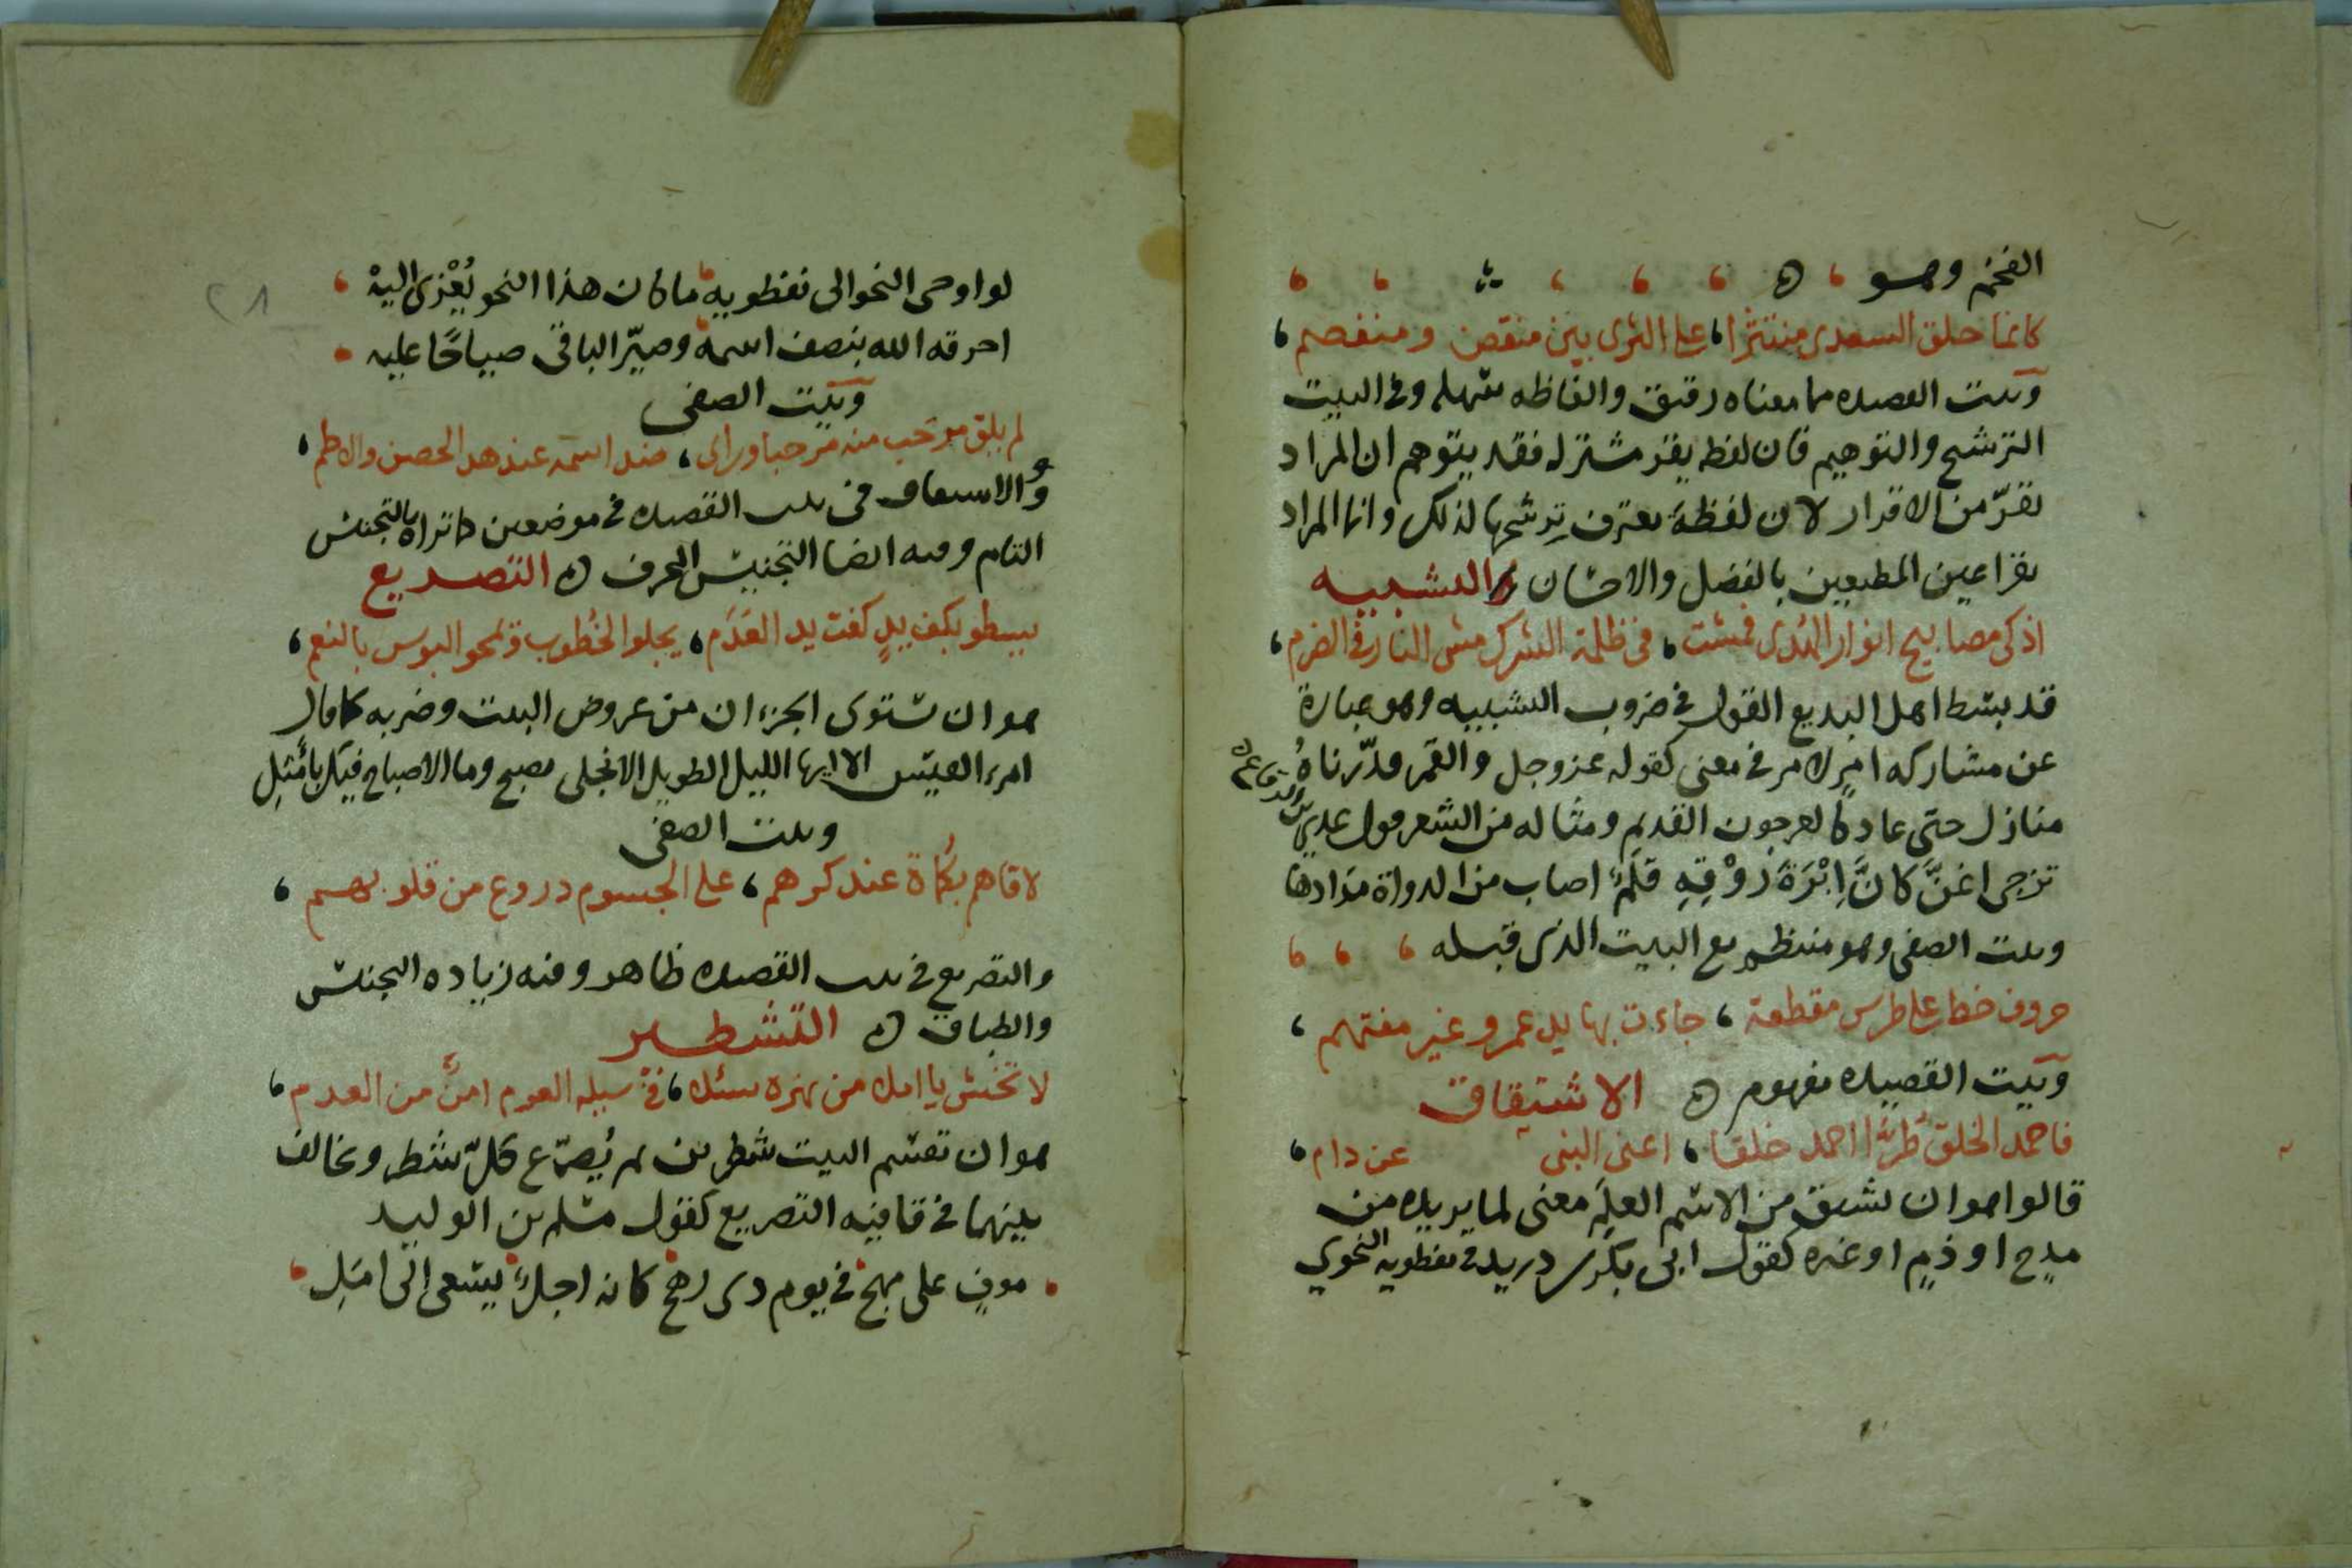 الفخم وهو
كانما حلق السعدي منتثرا على الثرى بين منقض ومنفصم
وبيت القصيده مما معناه رقيق والفاظه سهله وفي البيت
الترشيح والتوهيم فان لفظه يقر مشتركه فقد يتوهم ان المراد
تقرّ من الاقرار لان لفظة يعترف ترشحها لذلك وانما المراد
بقر اعين المطيعين بالفضل والاحسان التشبيه
اذكى مصابيح انوار الهدى فمشت في ظلمة الشرك مشى النار في الضرم
قد بسط اهل البديع القول في ضروب التشبيه وهو عبارة
عن مشاركه امرٍ لامر في معنى كقوله عز وجل والقمر قدّرناهُ
منازل حتى عاد كالعرجون القديم ومثاله من الشعر قول عدي بن الرقاع
تزجى اغنّ كانَّ اِبْرَةَ رَوْقِهِ قلمٌ اصاب من الدواة مدادها
وبيت الصفى وهو منتظم مع البيت الذى قبله
حروف خط على طرس مقطعة جاءت بها يد عمرو غير مفتهم
وبيت القصيده مفهوم الاشتقاق
فاحمد الخلق طرا احمد خلقا اعنى النبي عن دام
قالوا هو ان يشتق من الاسم العلم معنى لما يريده من
مدح او ذم او غيره كقول ابى بكر بن دريد في نفطويه النحوي
لو اوحى النحو الى نفطويه ما كان هذا النحو يُعْزى اليهْ
احرقه الله بنصف اسمه وصيّر الباقى صياحًا عليه
وبيت الصفى
لم يلق مرحب منه مرحبا وراى ضد اسمه عند هد الحصن والاطم
والاشتقاق في بيت القصيده في موضعين كما تراه بالتجنيس
التام وفيه ايضا التجنيس المحرف التصريع
يسطو بكف يدٍ كفت يد العَدَم يجلو الخُطوب ويمحو البوس بالنعم
هو ان يستوى الجزءان من عروض البيت وضربه كما قال
امرء القيس الا ايها الليل الطويل الا انجلى بصبح وما الاصباح فيك بأمثلِ
وبيت الصفى
لاقاهم بكماة عند كرهم على الجسوم دروع من قلوبهم
والتصريع في بيت القصيده ظاهر وفيه زياده التجنيس
والطباق التشطير
لا تخش يا املى من نهزه سئلت في سيله العرم امنٌ من العدم
هو ان تقسم البيت شطرين ثم يُصرّع كلّ شطر وتخالف
بينهما في قافيه التصريع كقول مسلم بن الوليد
موفٍ على مهج في يوم ذى رهج كانه اجلٌ يسعى الى امَلِ